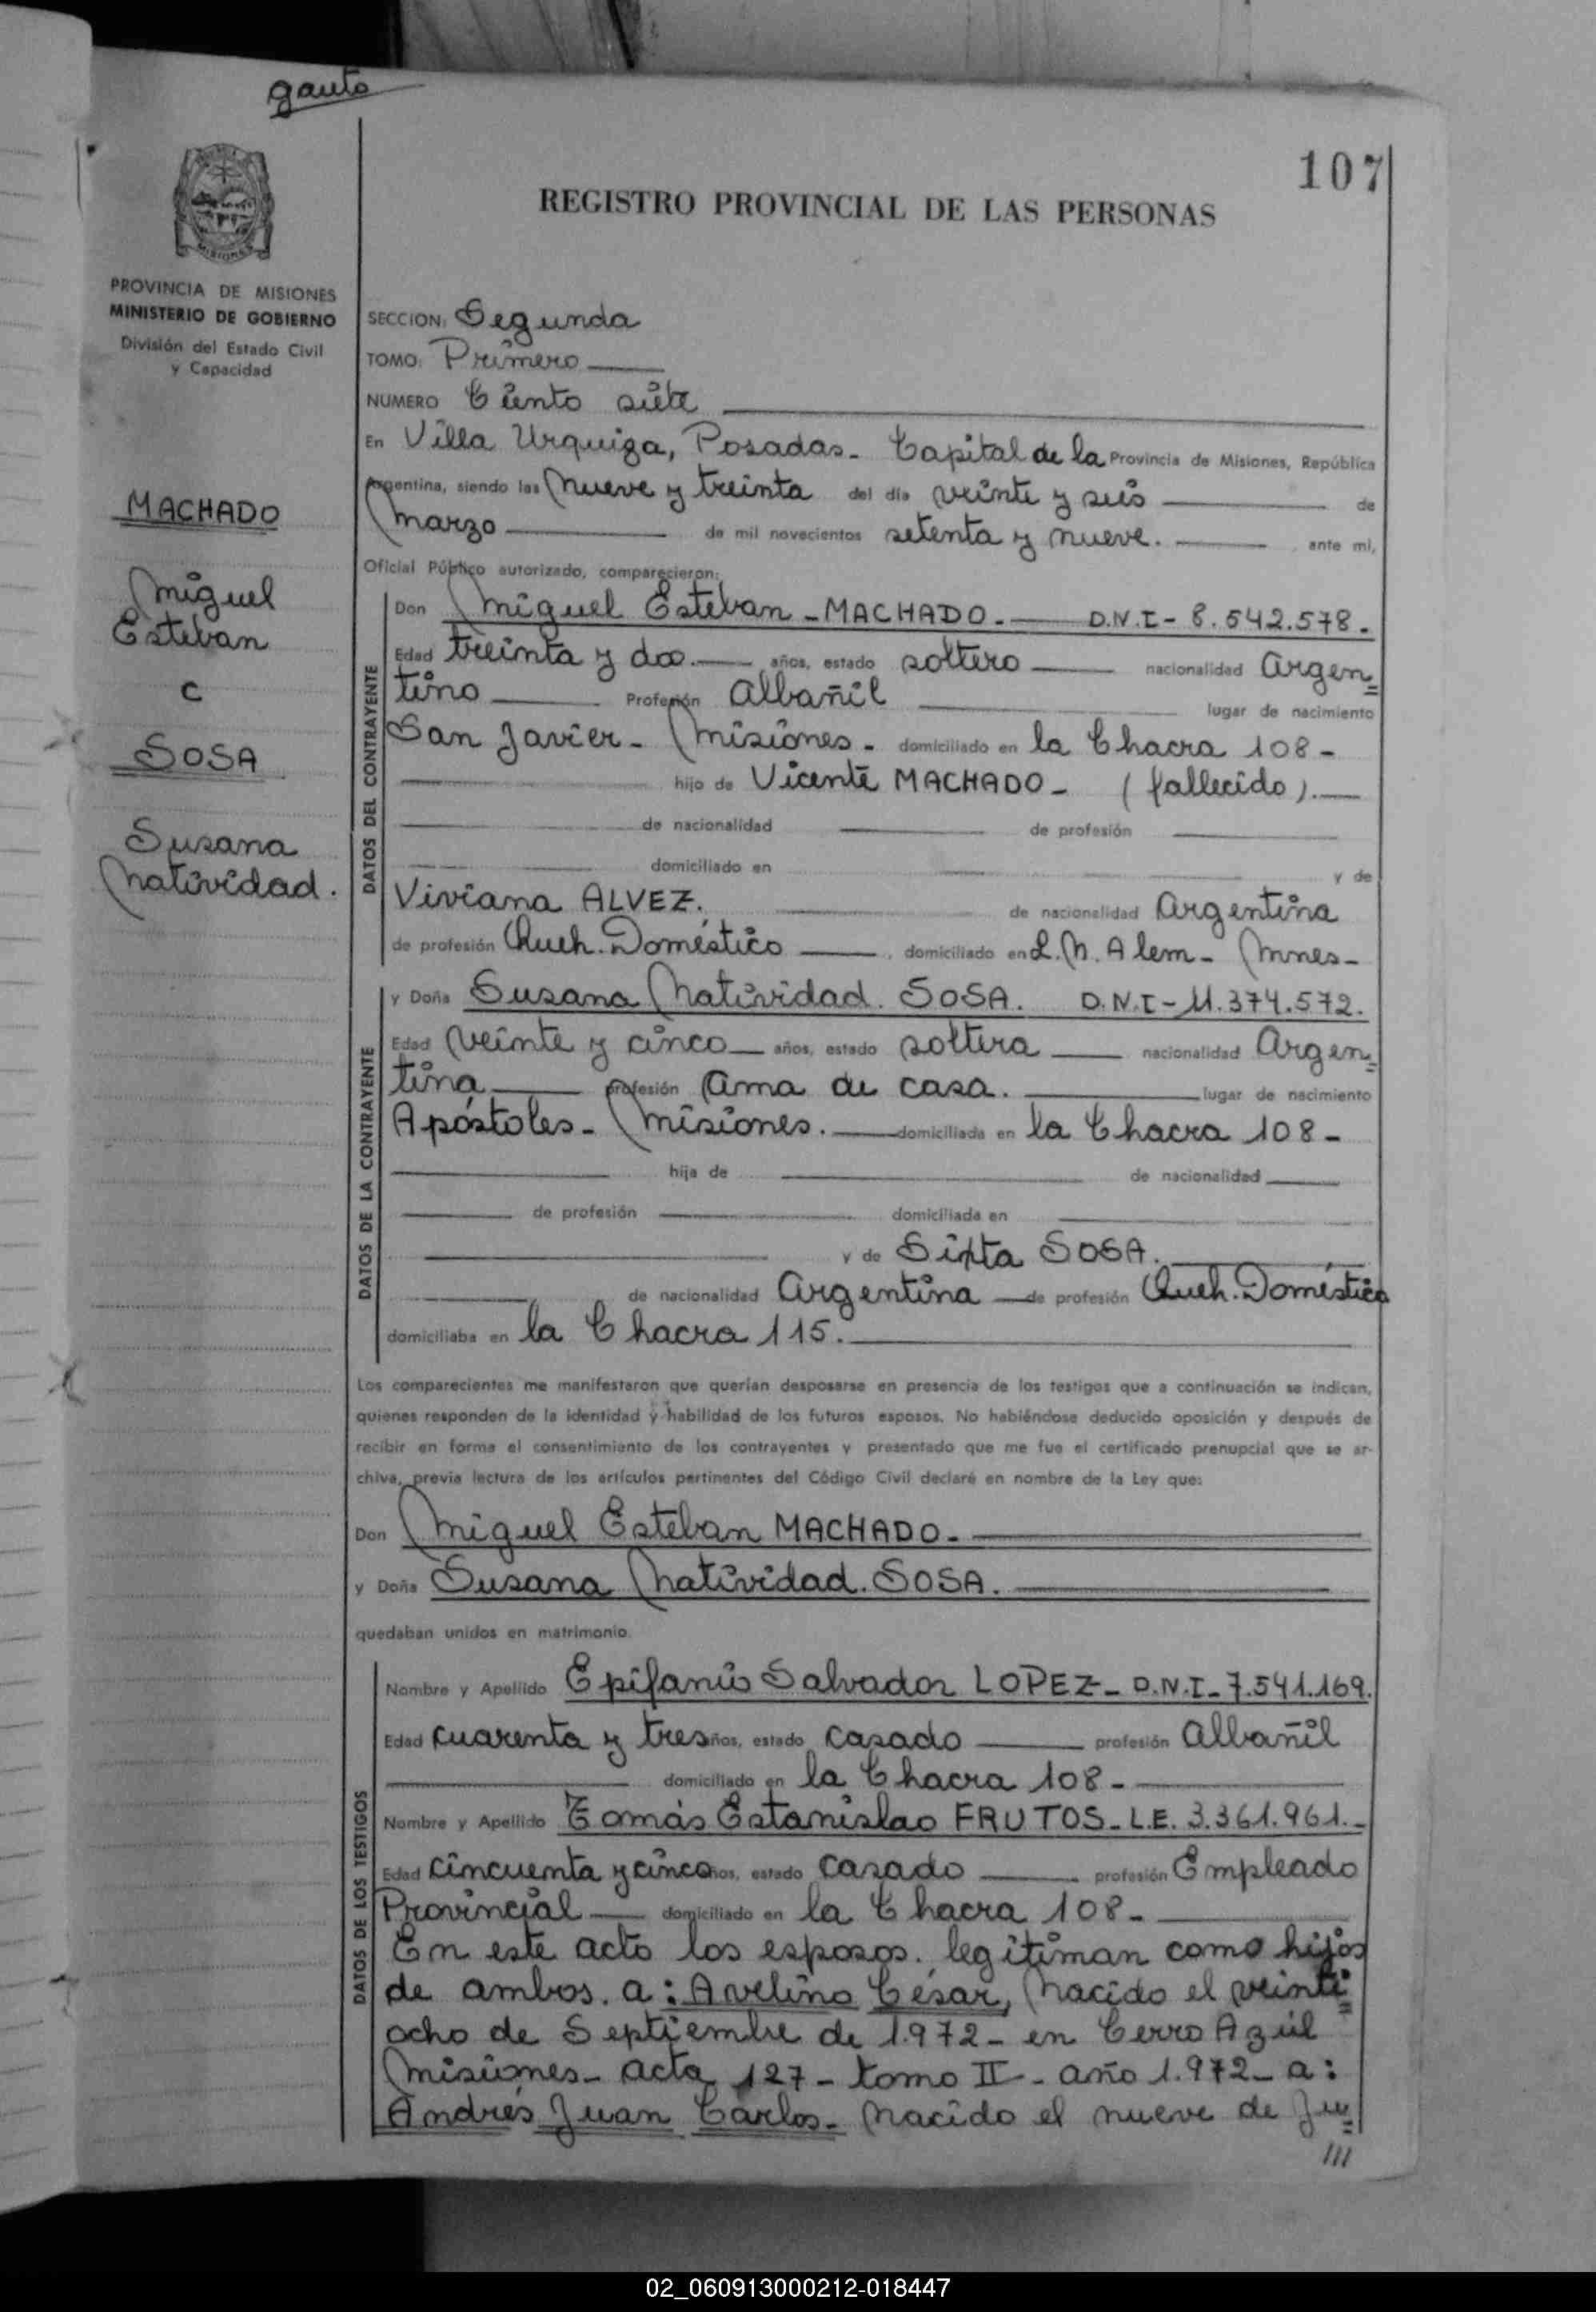 gauto
107
REGISTRO PROVINCIAL DE LAS PERSONAS
MISIONES
PROVINCIA DE MISIONES
MINISTERIO DE GOBIERNO
División del Estado Civil
y Capacidad
MACHADO
Miguel
Esteban
c
SOSA
Susana
Natividad.
SECCION: Segunda
TOMO: Primero
NUMERO Ciento siete
En Villa Urquiza, Posadas- Capital de la Provincia de Misiones, República
Argentina, siendo las Nueve y treinta del día veinte y seis de
Marzo de mil novecientos setenta y nueve. ante mi,
Oficial Público autorizado, comparecieron:
DATOS DEL CONTRAYENTE
Don Miguel Esteban - MACHADO. D.N.I - 8.542.578.
Edad treinta y dos. años, estado soltero nacionalidad Argen=
tino Profesión Albañil lugar de nacimiento
San Javier - Misiones - domiciliado en la Chacra 108 -
hijo de Vicente MACHADO - (fallecido).
de nacionalidad de profesión
domiciliado en y de
Viviana ALVEZ. de nacionalidad Argentina
de profesión Queh. Doméstico , domiciliado en L.N. Alem - Mnes -
DATOS DE LA CONTRAYENTE
y Doña Susana Natividad. SOSA. D.N.I - 11.374.572.
Edad Veinte y cinco años, estado soltera nacionalidad Argen=
tina profesión Ama de casa. lugar de nacimiento
Apóstoles - Misiones. domiciliada en la Chacra 108 -
hija de de nacionalidad
de profesión domiciliada en
y de Sixta SOSA.
de nacionalidad Argentina de profesión Queh. Doméstico
domiciliaba en la Chacra 115.
Los comparecientes me manifestaron que querían desposarse en presencia de los testigos que a continuación se indican,
quienes responden de la identidad y habilidad de los futuros esposos. No habiéndose deducido oposición y después de
recibir en forma el consentimiento de los contrayentes y presentado que me fue el certificado prenupcial que se ar-
chiva, previa lectura de los artículos pertinentes del Código Civil declaré en nombre de la Ley que:
Don Miguel Esteban MACHADO.
y Doña Susana Natividad. SOSA.
quedaban unidos en matrimonio.
DATOS DE LOS TESTIGOS
Nombre y Apellido Epifanio Salvador LOPEZ - D.N.I - 7.541.169.
Edad cuarenta y tres años, estado casado profesión Albañil
domiciliado en la Chacra 108 -
Nombre y Apellido Tomás Estanislao FRUTOS - L.E. 3.361.961.
Edad Cincuenta y cinco años, estado casado profesión Empleado
Provincial domiciliado en la Chacra 108 -
En este acto los esposos. legitiman como hijos
de ambos. a: Avelino César, Nacido el veinti=
ocho de Septiembre de 1.972 - en Cerro Azúl
Misiones - acta 127 - tomo II - año 1.972 - a:
Andrés Juan Carlos - Nacido el nueve de Ju=
///
02_060913000212-018447